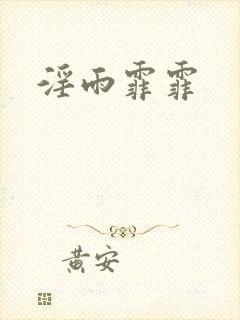 淫雨霏霏
黄安